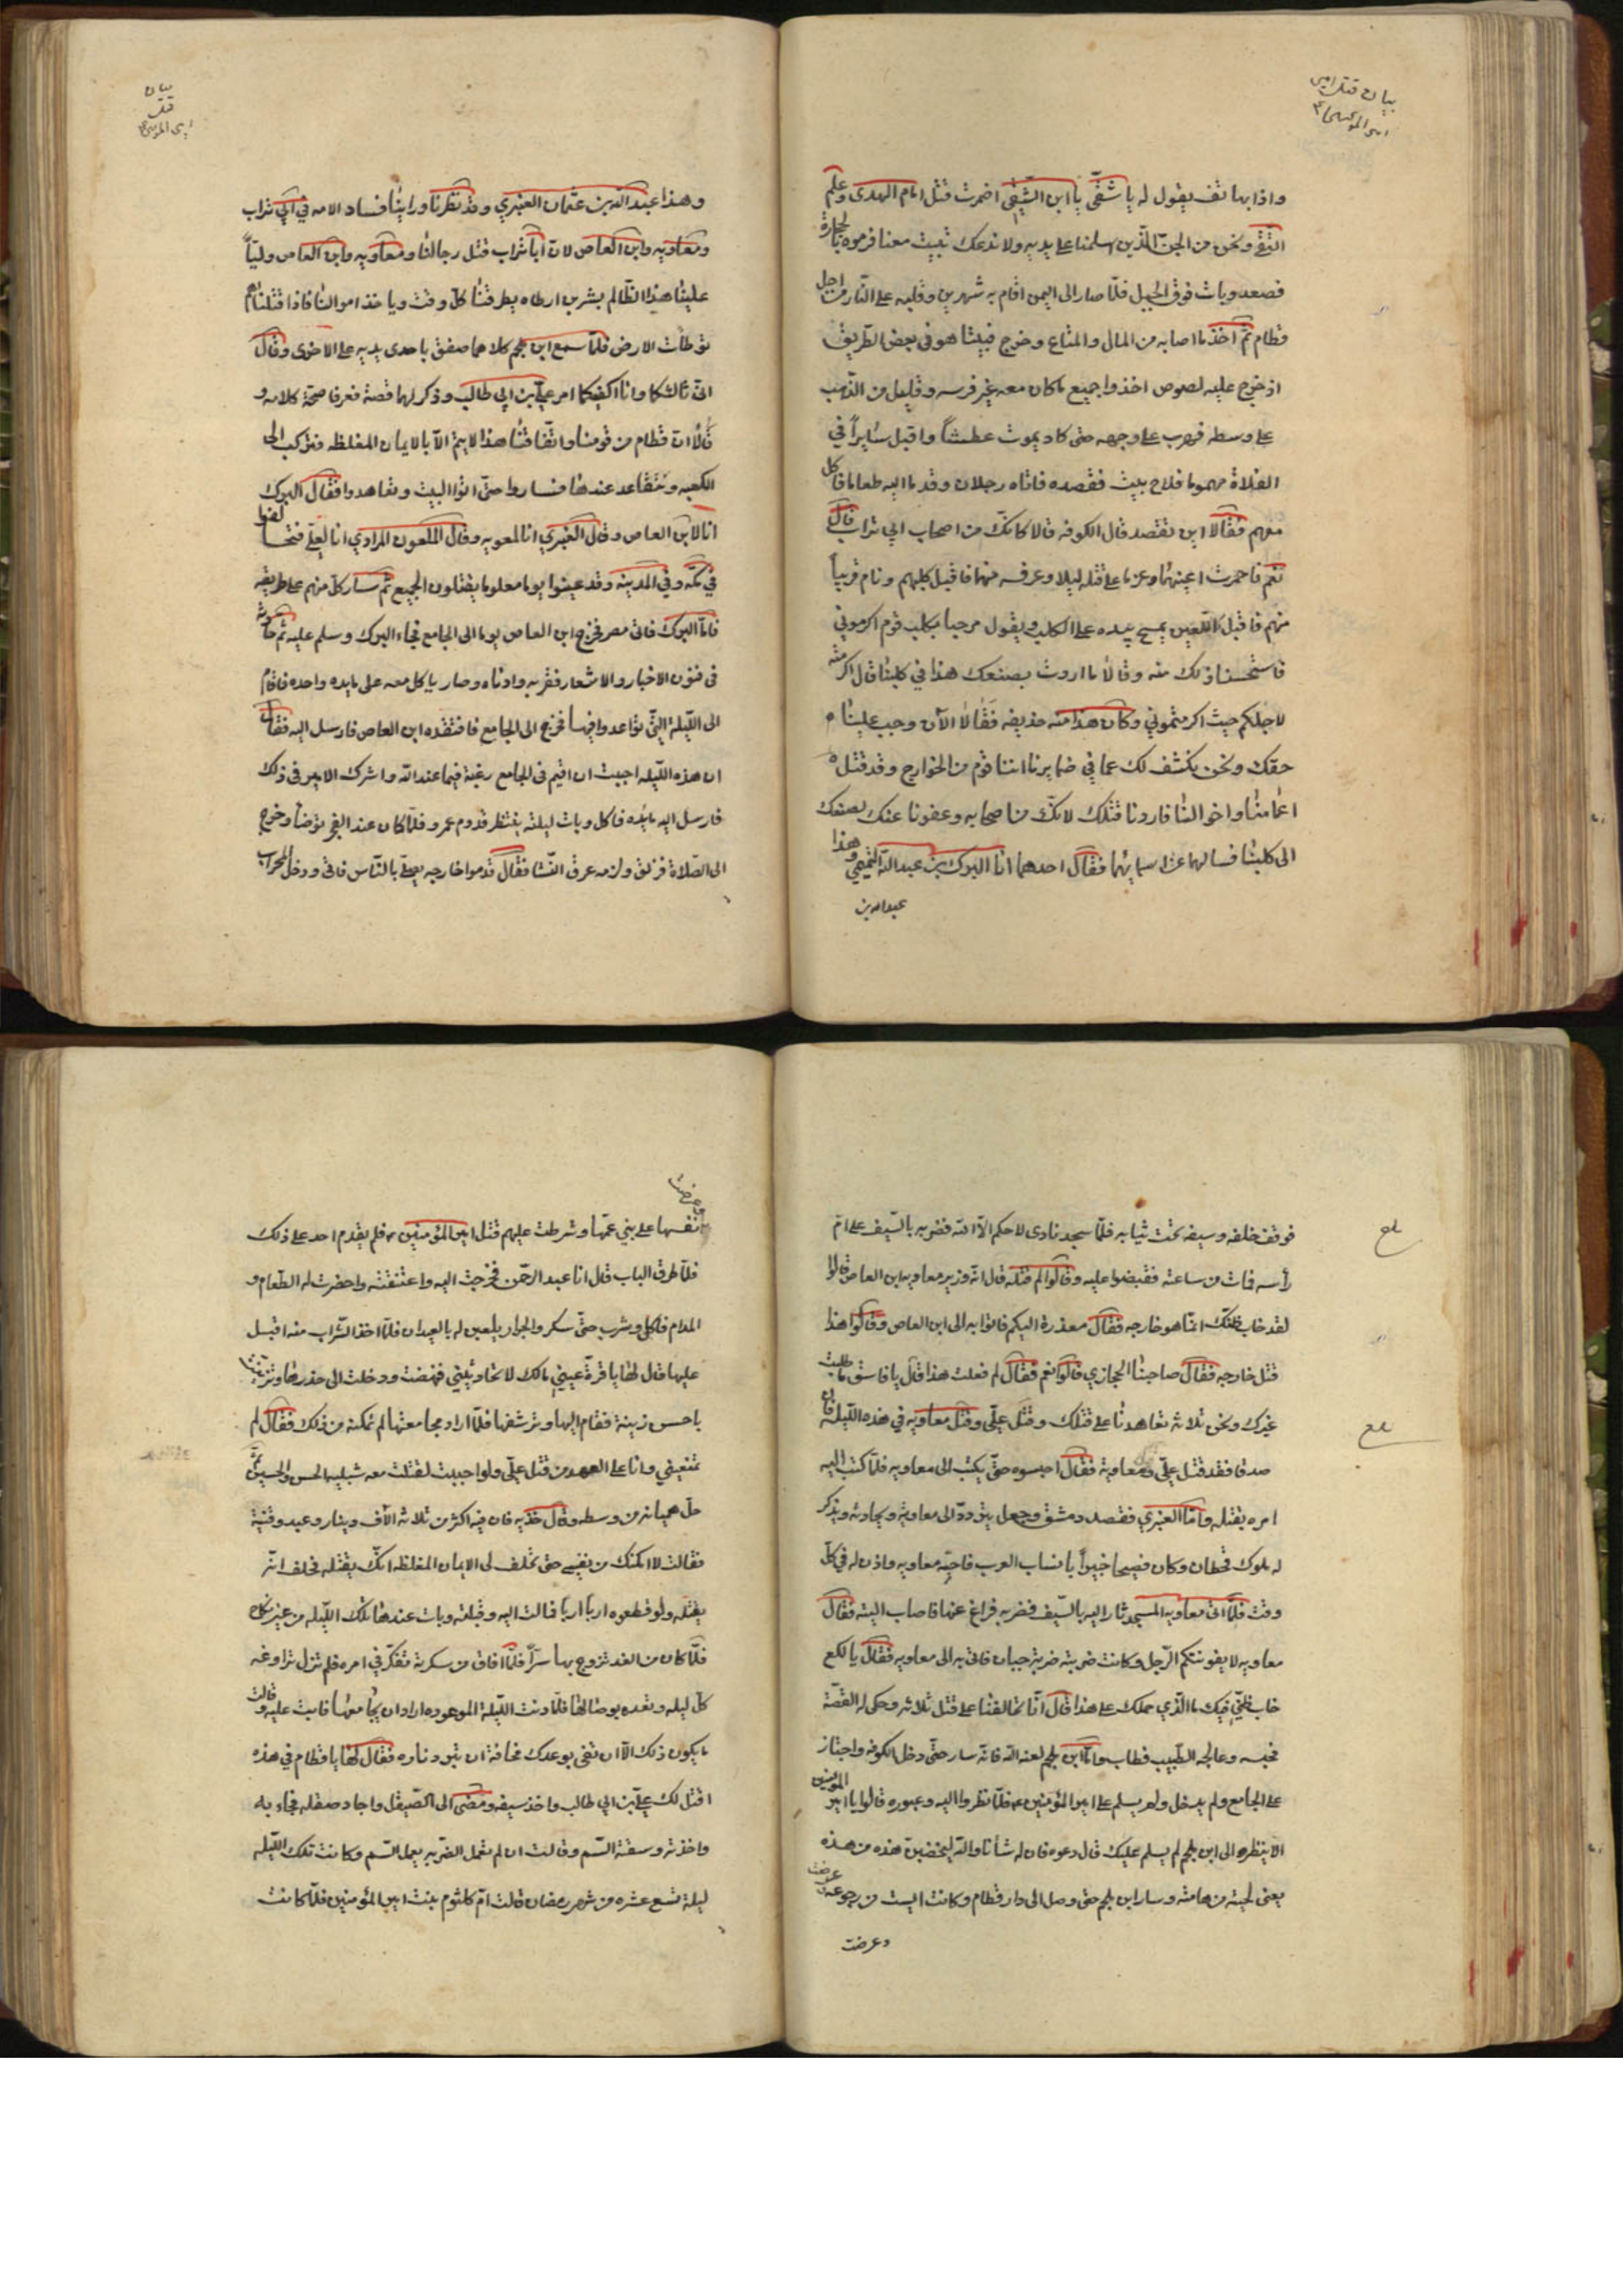 بيان قتل امير
المؤمنين
واذا بهاتف يقول له يا شقى يا ابن الشقى اضمرت قتل امام الهدى وعلم
التقى ونحن من الجن الذين اسلمنا على يديه ولا ندعك تبيت معنا فرموه بالحجارة
فصعد وبات فوق الجبل فلما صار الى اليمن اقام به شهرين وقلبه على النار من اجل
قطام ثم اخذ ما اصابه من المال والمتاع وخرج فبينا هو فى بعض الطريق
اذ خرج عليه لصوص اخذوا جميع ما كان معه غير فرسه وقليل من الذهب
على وسطه فهرب على وجهه حتى كاد يموت عطشاً واقبل سايراً في
الفلاة مهموما فلاح بيت فقصده فاتاه رجلان وقدما اليه طعاما فاكل
معهم فقالا اين تقصد قال الكوفه قالا كانك من اصحاب ابي تراب قال
نعم فاحمرت اعينهما وعزما على قتله ليلا وعرف منهما فاقبل كلبهم ونام قريباً
منهم فاقبل اللعين يمسح بيده على الكلب ويقول مرحبا بكلب قوم اكرموني
فاستحسنا ذلك منه وقالا ما اردت بصنعك هذا في كلبنا قال اكرمته
لاجلكم حيث اكرمتموني وكان هذا منه خديعه فقالا الآن وجب علينا
حقك ونحن نكشف لك عما في ضمايرنا اننا قوم من الخوارج وقد قتل
اعمامنا واخوالنا فاردنا قتلك لانك من اصحابه وعفونا عنك لصنعك
الى كلبنا فسالهما عن اسمائهما فقال احدهما انا البرك بن عبدالله التميمي وهذا
عبدالله بن
بيان
قتل
امير المؤمنين
وهذا عبدالله بن عثمان العنبري وقد نظرنا وراينا فساد الامه في ابي تراب
ومعاويه وابن العاص لان ابا تراب قتل رجالنا ومعاويه وابن العاص وليّا
علينا هذا الظالم بشر بن ارطاه يطرقنا كل وقت وياخذ اموالنا فاذا قتلناهم
توطات الارض فلما سمع ابن ملجم كلامهما صفق باحدى يديه على الاخرى وقال
انى ثالثكما وانا اكفيكما امر علي بن ابي طالب وذكر لهما قصة فعرفا صحة كلامه و
قالا ان قطام من قومنا واتفاقنا هذا لا يتم الا بالايمان المغلظه فنركب الى
الكعبه ونتعاهد عندها فساروا حتى اتوا البيت وتعاهدوا فقال البرك
انا لابن العاص وقال العنبري انا لمعويه وقال الملعون المرادي انا لعلي فتحالفوا
في مكه وفي المدينه وقد عينوا يوما معلوما يقتلون الجميع ثم سار كل منهم على طريقه
فاما البرك فاتى مصر فخرج ابن العاص يوما الى الجامع فجاء البرك وسلم عليه ثم حادثه
فى فنون الاخبار والاشعار فقربه وادناه وصار ياكل معه على مايده واحده فاقام
الى الليله التى تواعدوا فيها فخرج الى الجامع فافتقده ابن العاص فارسل اليه فقال
ان هذه الليله احببت ان اقيم فى الجامع رغبة فيما عند الله واشرك الامير فى ذلك
فارسل اليه مايده فاكل وبات ليلته ينتظر قدوم عمرو فلما كان عند الفجر توضأ وخرج
الى الصلاة فزلق ولزمه عرق النسا فقال قدموا خارجه يصلى بالناس فاتى ودخل المحراب
فوقف خلفه وسيفه تحت ثيابه فلما سجد نادى لا حكم الا لله فضربه بالسيف على ام
رأسه فمات من ساعته فقبضوا عليه وقالوا لم قتلته قال انه وزير معاويه ابن العاص قالوا
لقد خاب ظنك انما هو خارجه فقال معذرة اليكم فاتوا به الى ابن العاص وقالوا هذا
قتل خارجه فقال صاحبنا الحجازي قالوا نعم فقال لم فعلت هذا قال يا فاسق ما طلبت
غيرك ونحن ثلاثه تعاهدنا على قتلك وقتل على وقتل معاويه في هذه الليله فان
صدقا فقد قتل على ومعاوية فقال احبسوه حتى يكتب الى معاويه فلما كتب اليه
امره بقتله واما العنبري فقصد دمشق وجعل يتودد الى معاويه ويحادثه ويذكر
له ملوك قحطان وكان فصيحا خبيراً بانساب العرب فاحبه معاويه واذن له في كل
وقت فلما اتى معاويه المسجد ثار اليه بالسيف فضربه فراغ عنها فاصاب اليته فقال
معاويه لا يفوتنكم الرجل وكانت ضربته ضربة جبان فاتى به الى معاويه فقال يا لكع
خاب ظني فيك ما الذي حملك على هذا قال انا تحالفنا على قتل ثلاثه وحكى له القصة
فحبسه وعالجه الطبيب فطاب واما ابن ملجم لعنه الله فانه سار حتى دخل الكوفه واجتاز
على الجامع ولم يدخل ولم يسلم على امير المؤمنين فلما نظروا اليه وعبوره قالوا يا امير المؤمنين
الا ينظر الى ابن ملجم لم يسلم عليك قال دعوه فان له شأنا والله ليخضبن هذه من هذه
يعنى لحيته من هامته وسار ابن ملجم حتى وصل الى دار قطام وكانت ايست من رجوعه عرضت
وعرضت
بلغ
بلغ
وعرضت
نفسها على بني عمها وشرطت عليهم قتل امير المؤمنين فلم يقدم احد على ذلك
فلما طرق الباب قال انا عبد الرحمن فخرجت اليه واعتنقته واحضرت له الطعام و
المدام فاكل وشرب حتى سكر والجوار يلعبن له بالعيدان فلما اخذ الشراب منه اقبل
عليها قال لها يا قرة عيني مالك لا تحادثيني فنهضت ودخلت الى خدرها وتزينت
باحسن زينة فقام اليها وترشفها فلما اراد مجامعتها لم تمكنه من ذلك فقال لم
تمنعيني وانا على العهد من قتل على ولو احببت لقتلت معه شبليه الحسن والحسين ثم
حل هميانه من وسطه وقال خذيه فان فيه اكثر من ثلاثه آلاف دينار وعبد وقنية
فقالت لا امكنك من نفسي حتى تحلف لى الايمان المغلظه انك تقتله فحلف انه
يقتله ولو قطعوه اربا اربا فمالت اليه وقبلته وبات عندها تلك الليله من غير نكاح
فلما كان من الغد تزوج بها سراً فلما افاق من سكرته تفكر في امره فلم تزل تراوغه
كل ليله وتعده بوصالها فلما دنت الليلة الموعوده اراد ان يجامعها فابت عليه وقالت
ما يكون ذلك الا ان تفى بوعدك مخافة ان تبرد ناره فقال لها يا قطام في هذه
اقتل لك على بن ابي طالب واخذ سيفه ومضى الى الصيقل واجاد صقله فجاء به
واخذته وسقته السم وقالت ان لم تعمل الضربه يعمل السم وكانت تلك الليله
ليلة تسع عشره من شهر رمضان قالت ام كلثوم بنت امير المؤمنين فلما كانت